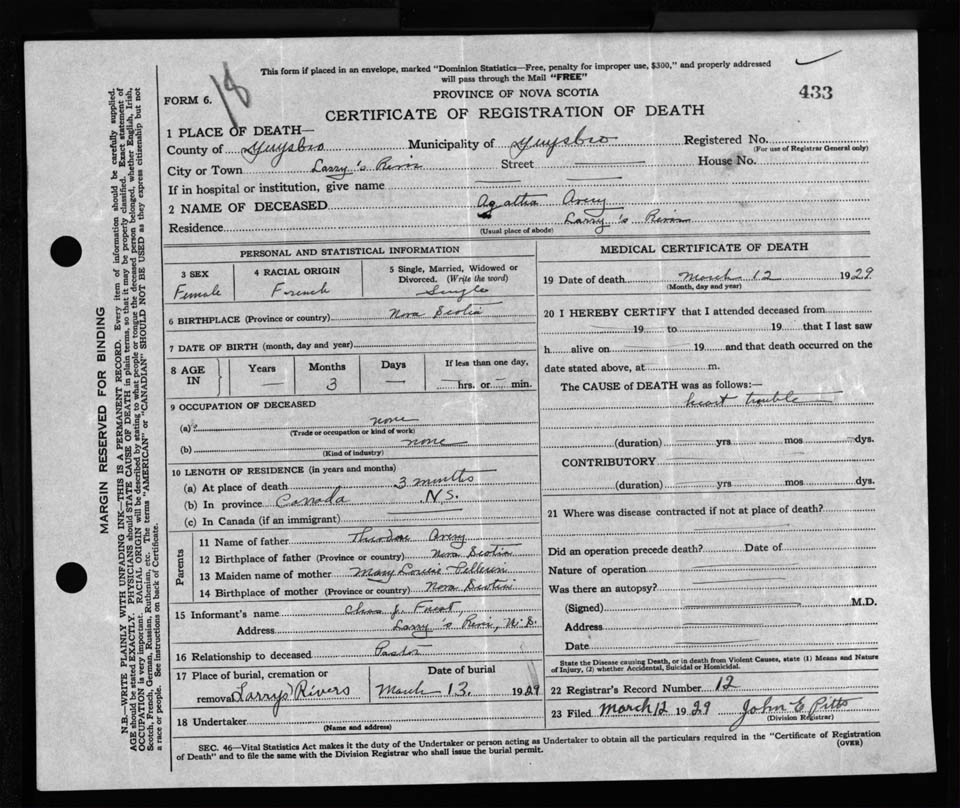 This form if placed in an envelope, marked "Dominion Statistics—Free, penalty for improper use, $300," and properly addressed
will pass through the Mail "FREE"
FORM 6.
18
PROVINCE OF NOVA SCOTIA
433
CERTIFICATE OF REGISTRATION OF DEATH
1 PLACE OF DEATH—
County of Guysbro Municipality of Guysbro Registered No.
(For use of Registrar General only)
City or Town Larry's River Street House No.
If in hospital or institution, give name
2 NAME OF DECEASED Agatha Avery
Residence Larry's River
(Usual place of abode)
PERSONAL AND STATISTICAL INFORMATION
3 SEX 4 RACIAL ORIGIN 5 Single, Married, Widowed or
Divorced. (Write the word)
Female French Single
6 BIRTHPLACE (Province or country) Nova Scotia
7 DATE OF BIRTH (month, day and year)
8 AGE IN Years Months Days If less than one day,
— 3 — hrs. or — min.
9 OCCUPATION OF DECEASED
(a) none
(Trade or occupation or kind of work)
(b) none
(Kind of industry)
10 LENGTH OF RESIDENCE (in years and months)
(a) At place of death 3 months
(b) In province Canada N.S.
(c) In Canada (if an immigrant)
Parents
11 Name of father Avery
12 Birthplace of father (Province or country) Nova Scotia
13 Maiden name of mother Mary Louise
14 Birthplace of mother (Province or country) Nova Scotia
15 Informant's name J. Forest,
Address Larry's River, N.S.
16 Relationship to deceased Pastor
17 Place of burial, cremation or Date of burial
removal Larrys Rivers March 13. 1929
18 Undertaker
(Name and address)
MEDICAL CERTIFICATE OF DEATH
19 Date of death March 12 1929
(Month, day and year)
20 I HEREBY CERTIFY that I attended deceased from
19 to 19 that I last saw
h alive on 19 and that death occurred on the
date stated above, at m.
The CAUSE of DEATH was as follows:—
heart trouble
(duration) yrs mos dys.
CONTRIBUTORY
(duration) yrs mos dys.
21 Where was disease contracted if not at place of death?
Did an operation precede death? Date of
Nature of operation
Was there an autopsy?
(Signed) M.D.
Address
Date
State the Disease causing Death, or in death from Violent Causes, state (1) Means and Nature
of Injury, (2) whether Accidental, Suicidal or Homicidal.
22 Registrar's Record Number 12
23 Filed March 12 1929 John E Pitts
(Division Registrar)
SEC. 46—Vital Statistics Act makes it the duty of the Undertaker or person acting as Undertaker to obtain all the particulars required in the "Certificate of Registration
of Death" and to file the same with the Division Registrar who shall issue the burial permit.
(OVER)
MARGIN RESERVED FOR BINDING
N.B.—WRITE PLAINLY WITH UNFADING INK—THIS IS A PERMANENT RECORD. Every item of information should be carefully supplied.
AGE should be stated EXACTLY. PHYSICIANS should STATE CAUSE OF DEATH in plain terms, so that it may be properly classified. Exact statement of
OCCUPATION is very important. RACIAL ORIGIN will be described by stating to what people or tongue the deceased person belonged, whether English, Irish,
Scotch, French, German, Russian, Ruthenian, etc. The terms "AMERICAN" or "CANADIAN" SHOULD NOT BE USED as they express citizenship but not
a race or people. See instructions on back of Certificate.